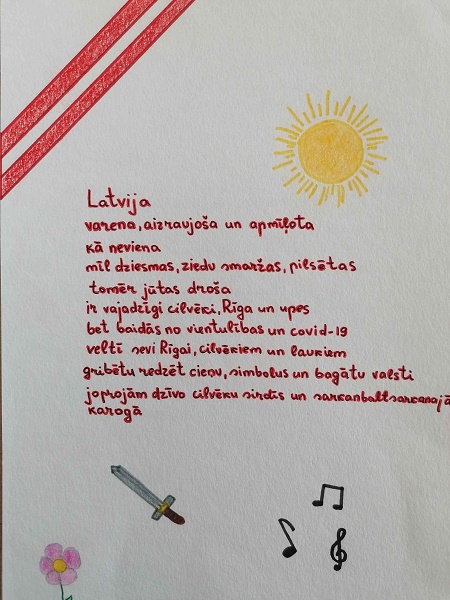 Latvija
varena, aizraujoša un apmīļota
kā neviena
mīl dziesmas, ziedu smaržas, pilsētas
tomēr jūtas droša
ir vajadzīgi cilvēki, Rīga un upes
bet baidās no vientulības un covid-19
veltī sevi Rīgai, cilvēkiem un laukiem
gribētu redzēt cieņu, simbolus un bagātu valsti
joprojām dzīvo cilvēku sirdīs un sarkanbaltsarkanajā
karogā